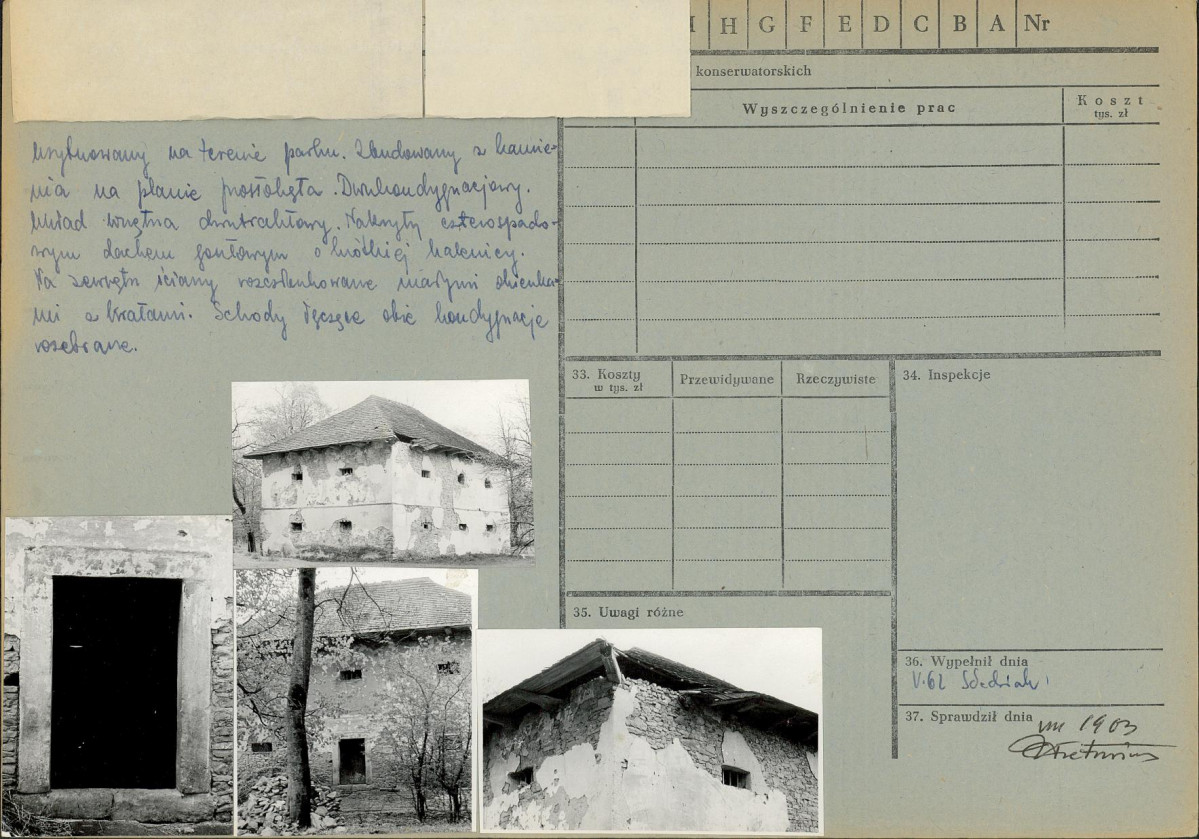 H G F E D C B A Nr
konserwatorskich
Wyszczególnienie prac
Koszt
tys. zł
Usytuowany na terenie parku. Zbudowany z kamie-
nia na planie prostokąta. Dwukondygnacjowy.
Układ wnętrza dwutraktowy. Nakryty czterospado-
wym dachem gontowym o krótkiej kalenicy.
Na zewnątrz ściany rozczłonkowane małymi okienka-
mi z kratami. Schody łączące obie kondygnacje
rozebrane.
33. Koszty
w tys. zł
Przewidywane
Rzeczywiste
34. Inspekcje
35. Uwagi różne
36. Wypełnił dnia
V.62
37. Sprawdził dnia